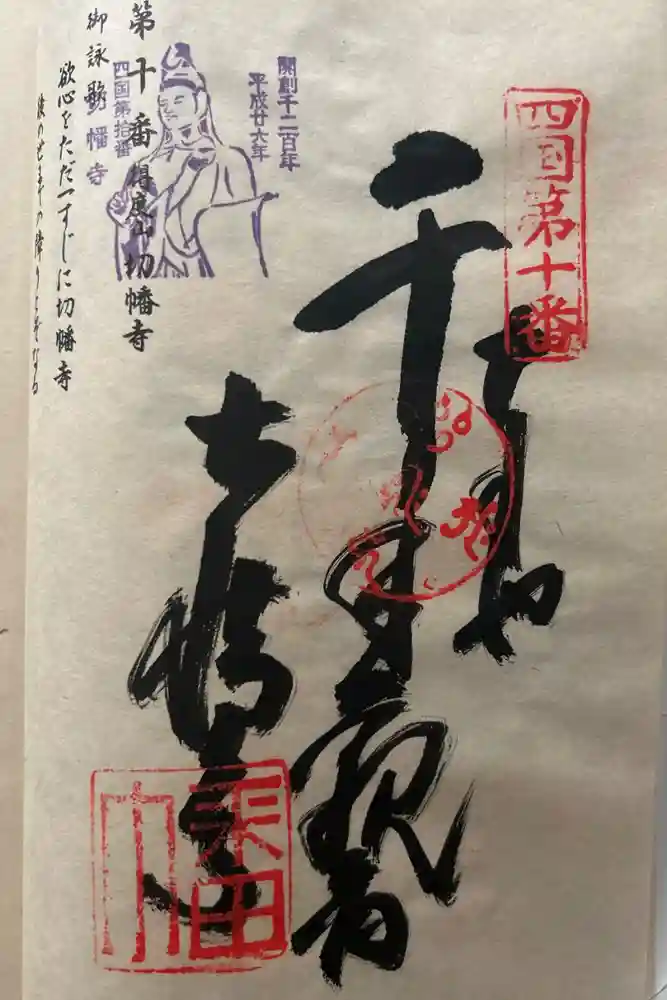 四国第十番
千手観音
切幡寺
開創千二百年
平成廿六年
四国第拾番
幡寺
第十番 得度山 切幡寺
御詠歌
欲心をただ一すじに切幡寺
後の世までの障りとぞなる